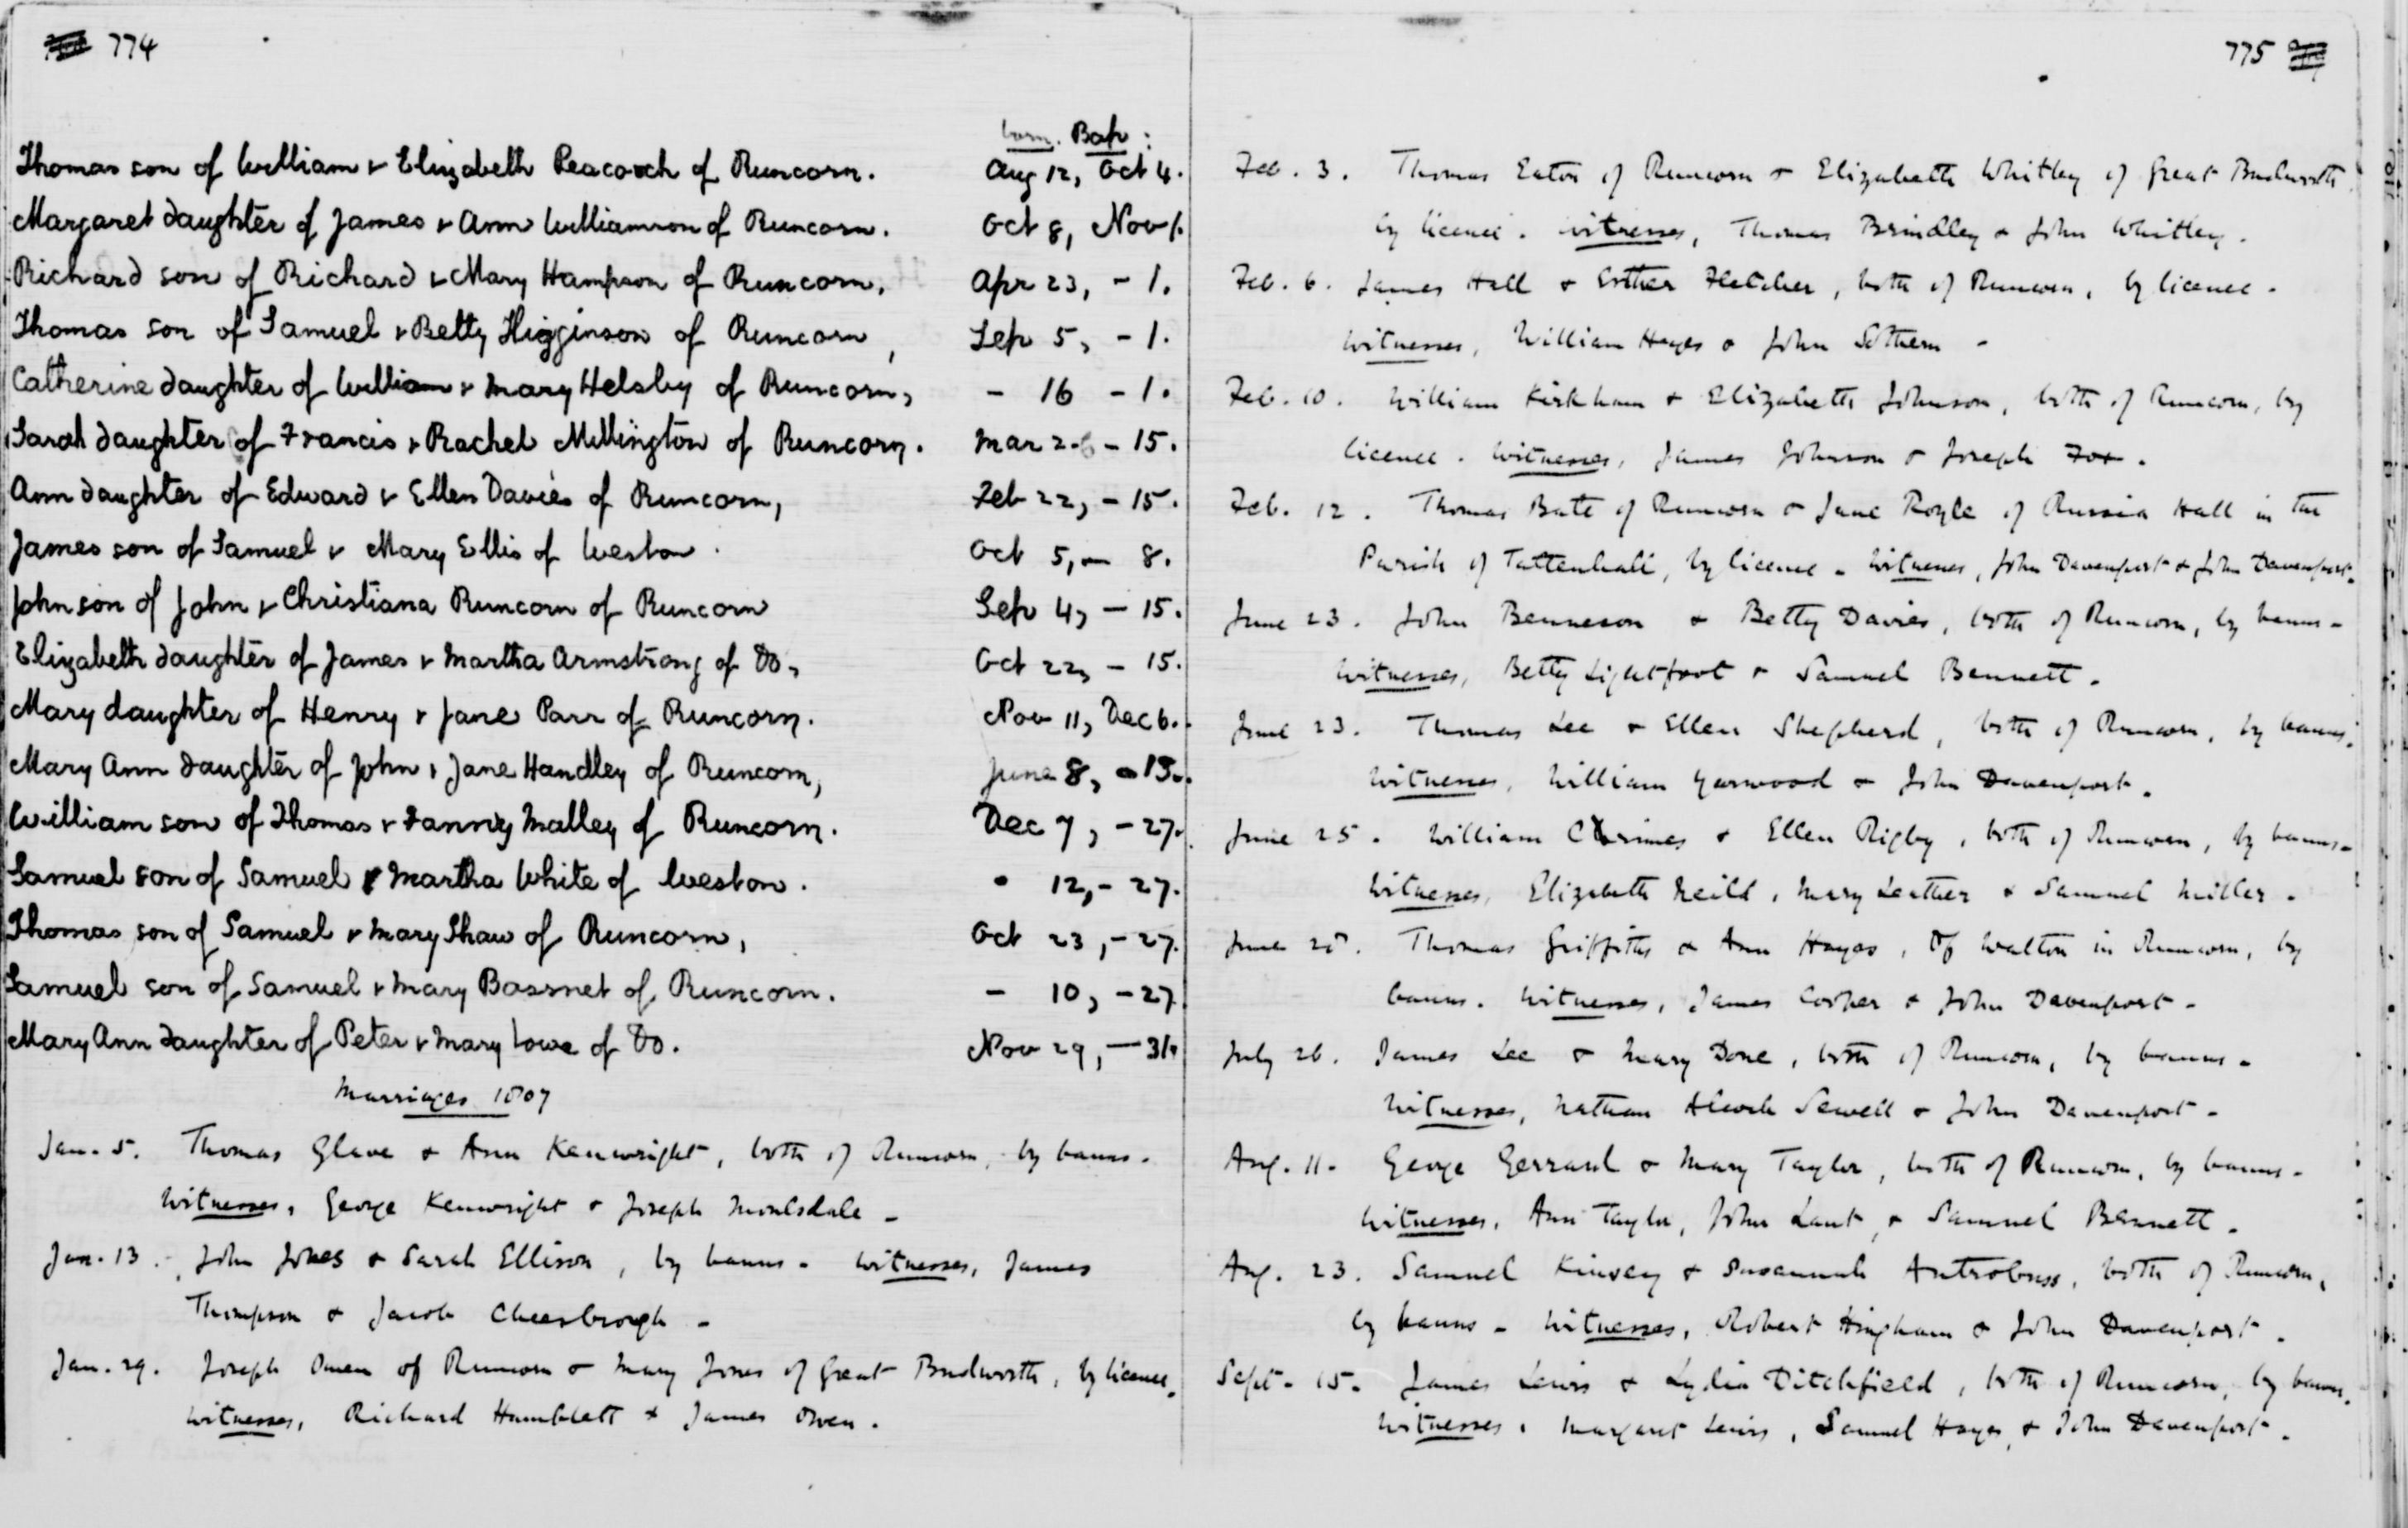 774
born. Bap:
Thomas son of William & Elizabeth Peacoock of Runcorn. Aug 12, Oct 4.
Margaret daughter of James & Ann Williamson of Runcorn. Oct 8, Nov 1.
Richard son of Richard & Mary Hampson of Runcorn, Apr 23, - 1.
Thomas son of Samuel & Betty Higginson of Runcorn, Sep 5, - 1.
Catherine daughter of William & Mary Helsby of Runcorn, - 16 - 1.
Sarah daughter of Francis & Rachel Millington of Runcorn. Mar 26 - 15.
Ann daughter of Edward & Ellen Davies of Runcorn, Feb 22, - 15.
James son of Samuel & Mary Ellis of Weston. Oct 5, - 8.
John son of John & Christiana Runcorn of Runcorn Sep 4, - 15.
Elizabeth daughter of James & Martha Armstrong of Do, Oct 22, - 15.
Mary daughter of Henry & Jane Parr of Runcorn. Nov 11, Dec 6.
Mary Ann daughter of John & Jane Handley of Runcorn, June 8, - 13.
William son of Thomas & Fanny Malley of Runcorn. Dec 7, - 27.
Samuel son of Samuel & Martha White of Weston. - 12, - 27.
Thomas son of Samuel & Mary Shaw of Runcorn, Oct 23, - 27.
Samuel son of Samuel & Mary Bassnet of Runcorn. - 10, - 27.
Mary Ann daughter of Peter & Mary Lowe of Do. Nov 29, - 31.
Marriages 1807
Jan. 5. Thomas Glave & Ann Kenwright, both of Runcorn, by banns.
Witnesses, George Kenwright & Joseph Moulsdale -
Jan. 13. John Jones & Sarah Ellison, by banns - Witnesses, James
Thompson & Jacob Cheesbrough -
Jan. 29. Joseph Owen of Runcorn & Mary Jones of Great Budworth, by licence.
Witnesses, Richard Humblett & James Owen.
775
Feb. 3. Thomas Eaton of Runcorn & Elizabeth Whitley of Great Budworth,
by licence. Witnesses, Thomas Brindley & John Whitley.
Feb. 6. James Hall & Esther Fletcher, both of Runcorn, by licence -
Witnesses, William Hayes & John Sothern -
Feb. 10. William Kirkham & Elizabeth Johnson, both of Runcorn, by
licence. Witnesses, James Johnson & Joseph Fox.
Feb. 12. Thomas Bate of Runcorn & Jane Royle of Russia Hall in the
Parish of Tattenhall, by licence - Witnesses, John Davenport & John Davenport.
June 23. John Benneson & Betty Davies, both of Runcorn, by banns -
Witnesses, Betty Lightfoot & Samuel Bennett.
June 23. Thomas Lee & Ellen Shepherd, both of Runcorn, by banns.
Witnesses, William Yarwood & John Davenport.
June 25. William Chrimes & Ellen Rigby, both of Runcorn, by banns -
Witnesses, Elizabeth Neild, Mary Leather & Samuel Miller.
June 28. Thomas Griffiths & Ann Hayes, of Walton in Runcorn, by
banns. Witnesses, James Cooper & John Davenport -
July 26. James Lee & Mary Done, both of Runcorn, by banns -
Witnesses, Nathan Alcock Sewell & John Davenport -
Aug. 11. George Gerrard & Mary Taylor, both of Runcorn, by banns -
Witnesses, Ann Taylor, John Lant, & Samuel Bennett.
Aug. 23. Samuel Kinsey & Susannah Antrobuss, both of Runcorn,
by banns - Witnesses, Robert Hingham & John Davenport.
Sept. 15. James Lewis & Lydia Ditchfield, both of Runcorn, by banns.
Witnesses, Margaret Lewis, Samuel Hayes, & John Davenport.